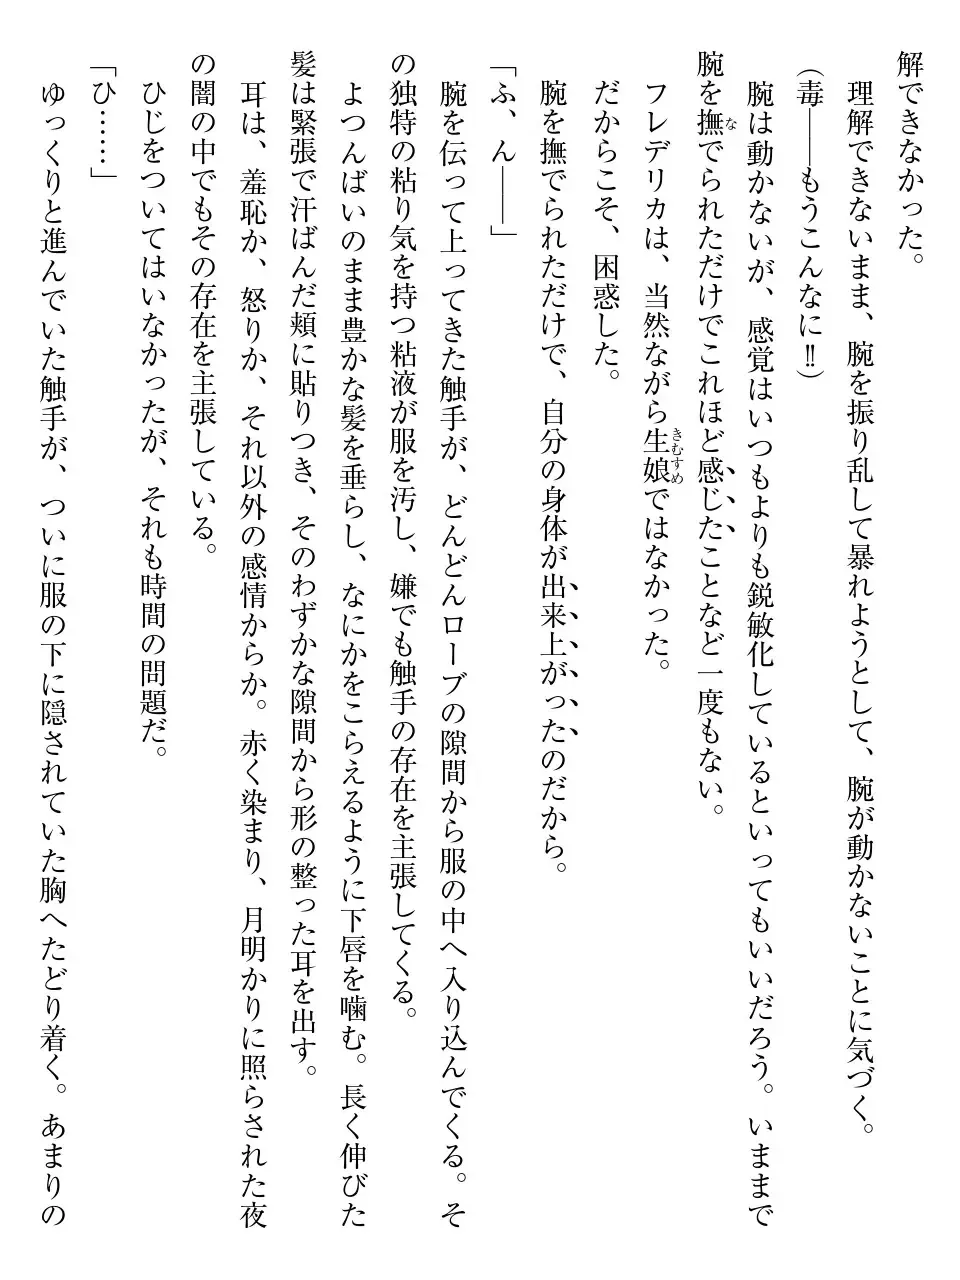 解できなかった。
　理解できないまま、腕を振り乱して暴れようとして、腕が動かないことに気づく。
（毒――もうこんなに!!）
　腕は動かないが、感覚はいつもよりも鋭敏化しているといってもいいだろう。いままで
腕を撫でられただけでこれほど感じたことなど一度もない。
　フレデリカは、当然ながら生娘ではなかった。
　だからこそ、困惑した。
　腕を撫でられただけで、自分の身体が出来上がったのだから。
「ふ、ん――」
　腕を伝って上ってきた触手が、どんどんローブの隙間から服の中へ入り込んでくる。そ
の独特の粘り気を持つ粘液が服を汚し、嫌でも触手の存在を主張してくる。
　よつんばいのまま豊かな髪を垂らし、なにかをこらえるように下唇を噛む。長く伸びた
髪は緊張で汗ばんだ頬に貼りつき、そのわずかな隙間から形の整った耳を出す。
　耳は、羞恥か、怒りか、それ以外の感情からか。赤く染まり、月明かりに照らされた夜
の闇の中でもその存在を主張している。
　ひじをついてはいなかったが、それも時間の問題だ。
「ひ……」
　ゆっくりと進んでいた触手が、ついに服の下に隠されていた胸へたどり着く。あまりの